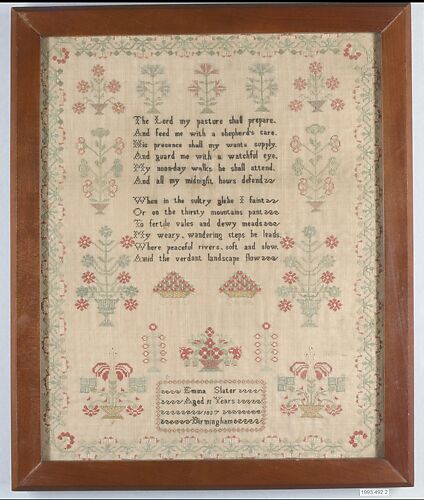 The Lord my pasture shall prepare,
And feed me with a shepherd's care.
His presence shall my wants supply,
And guard me with a watchful eye,
My noon-day walks he shall attend,
And all my midnight hours defend
When in the sultry glebe I faint
Or on the thirsty mountains pant
To fertile vales and dewy meads
My weary, wandering steps he leads,
Where peaceful rivers, soft and slow,
Amid the verdant landscape flow
Emma Slater
Aged 11 Years
1837
Birmingham
1993.492.2